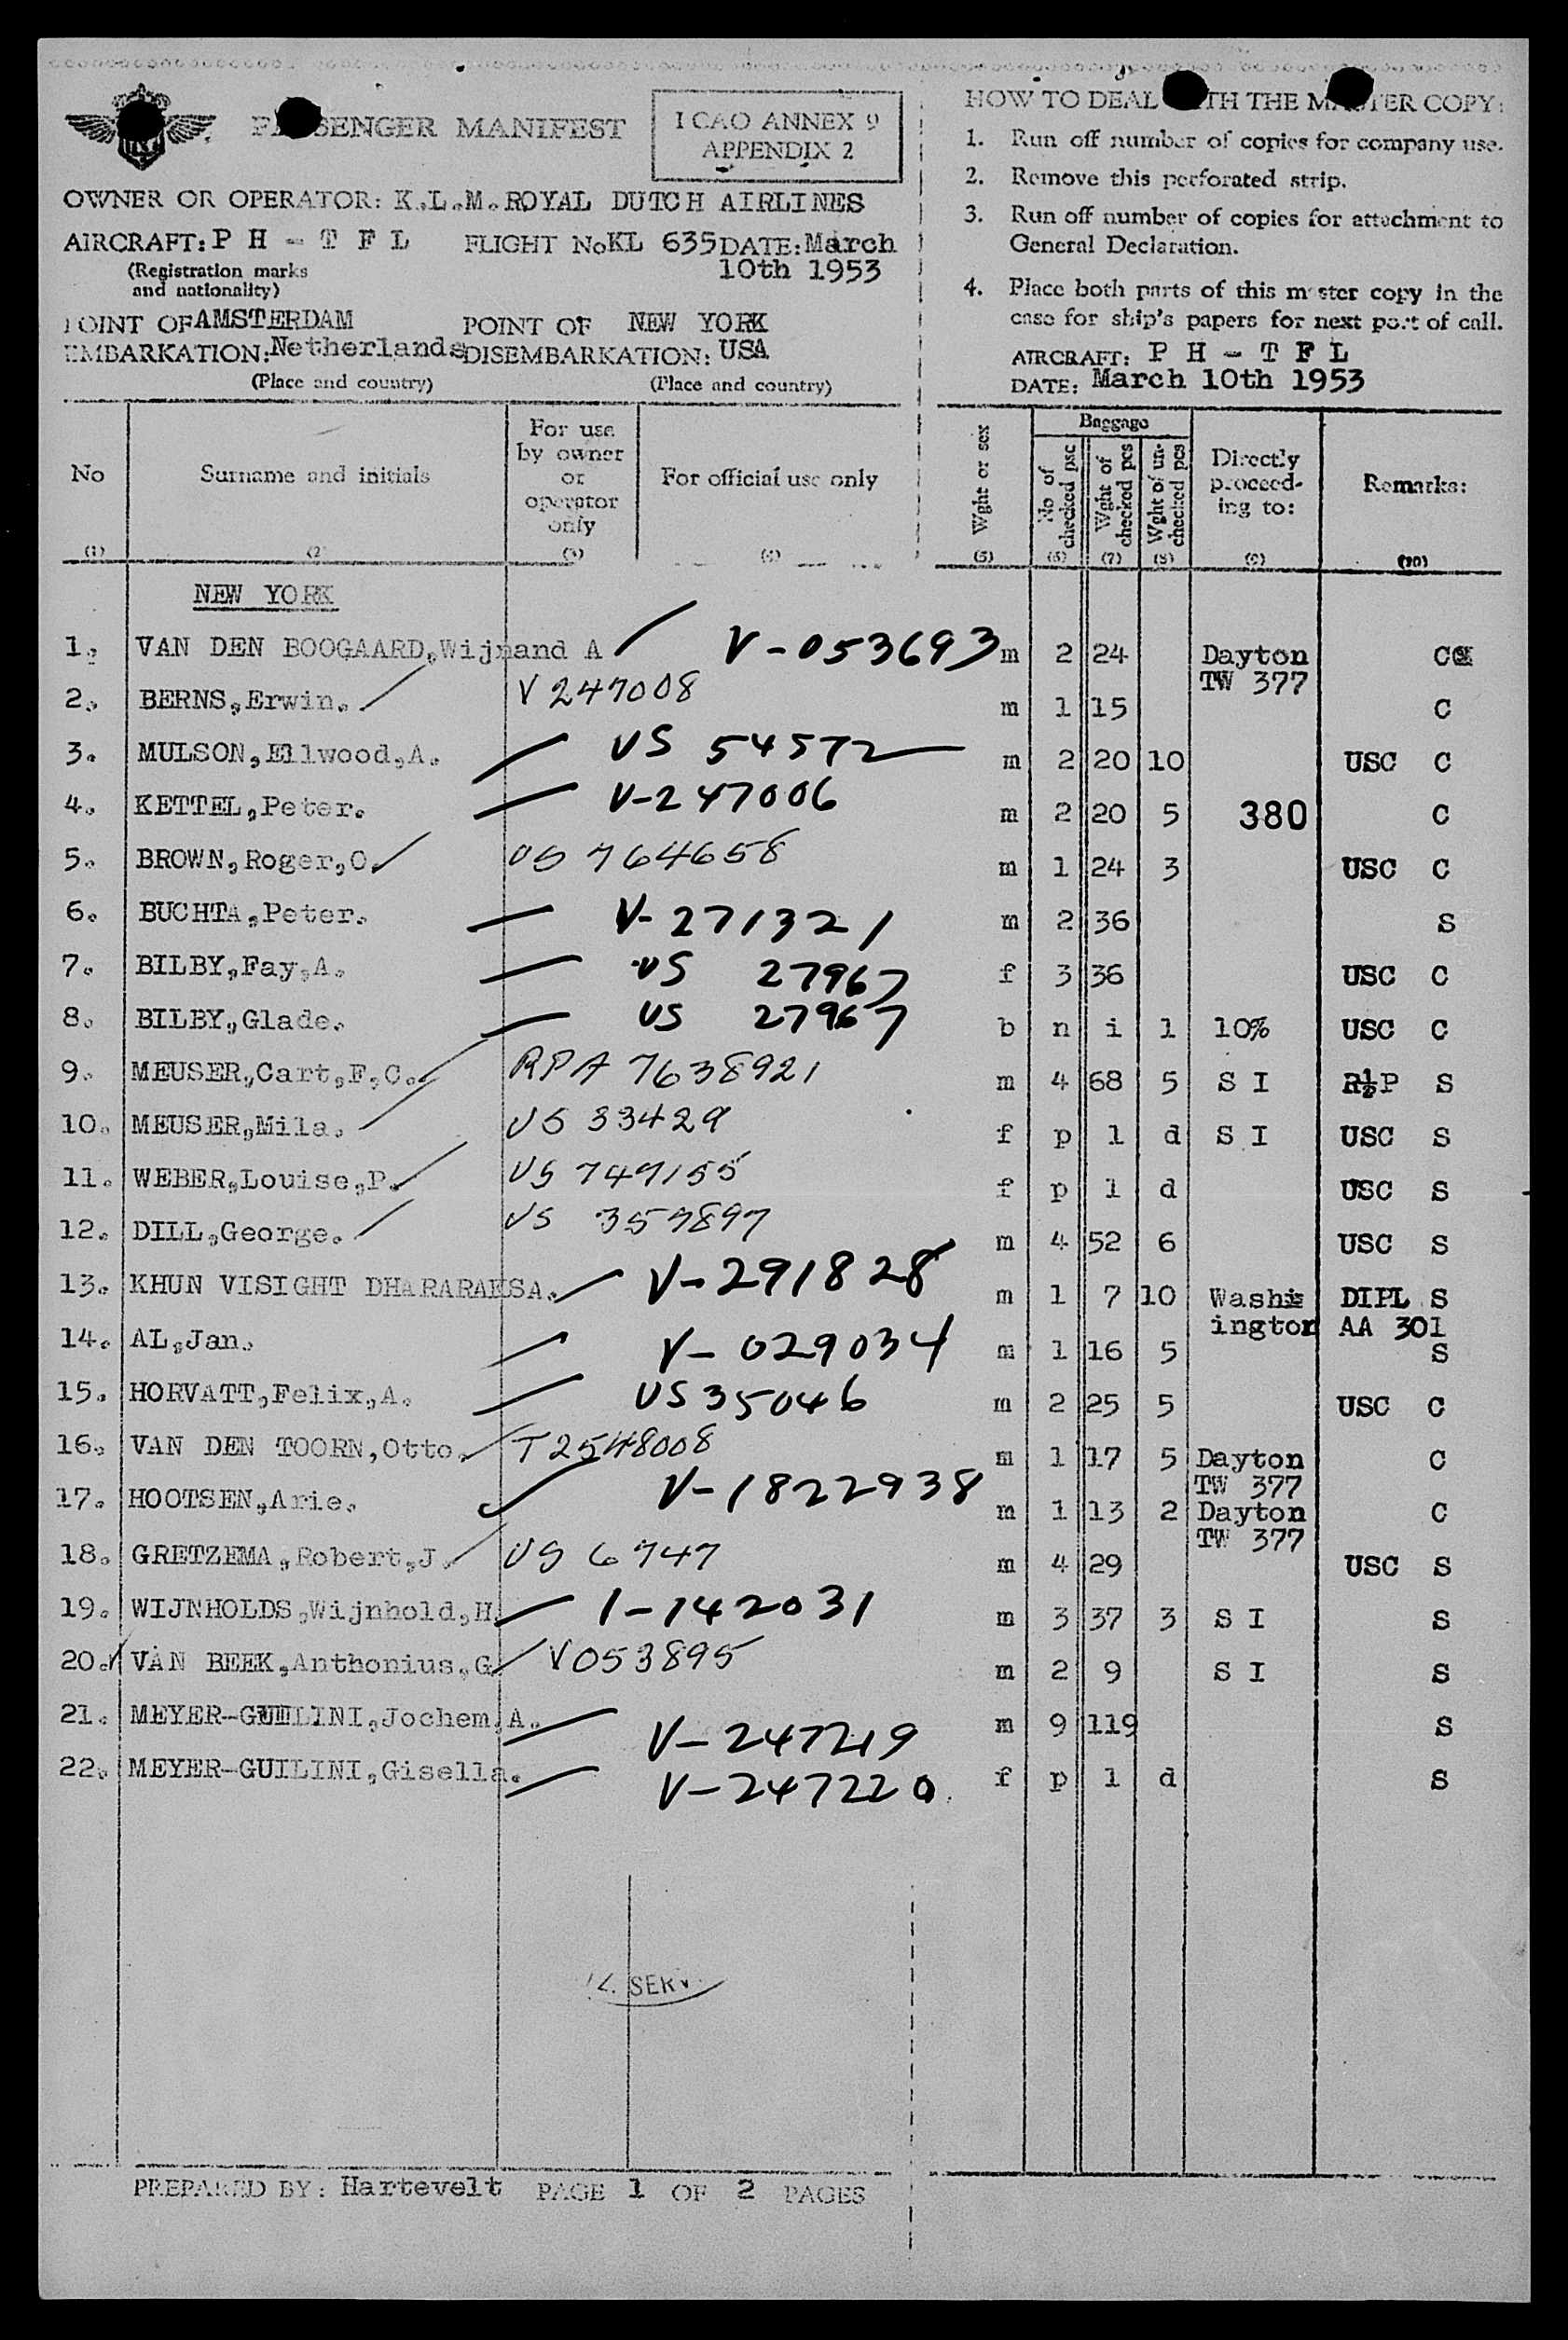 PASSENGER MANIFEST
ICAO ANNEX 9
APPENDIX 2
OWNER OR OPERATOR: K.L.M. ROYAL DUTCH AIRLINES
AIRCRAFT: P H - T F L FLIGHT No KL 635 DATE: March
10th 1953
(Registration marks
and nationality)
POINT OF AMSTERDAM POINT OF NEW YORK
EMBARKATION: Netherlands DISEMBARKATION: USA
(Place and country) (Place and country)
HOW TO DEAL WITH THE MASTER COPY:
1. Run off number of copies for company use.
2. Remove this perforated strip.
3. Run off number of copies for attachment to
General Declaration.
4. Place both parts of this master copy in the
case for ship's papers for next port of call.
AIRCRAFT: P H - T F L
DATE: March 10th 1953
No Surname and initials For use by owner or operator only For official use only Wght or sex Baggage No of checked psc Wght of checked pcs Wght of un-checked pcs Directly proceed-ing to: Remarks:
(1) (2) (3) (4) (5) (6) (7) (8) (9) (10)
NEW YORK
1. VAN DEN BOOGAARD,Wijnand A V-053693 m 2 24 Dayton C
TW 377
2. BERNS,Erwin. V 247008 m 1 15 C
3. MULSON,Ellwood,A. US 54572 m 2 20 10 USC C
4. KETTEL,Peter. V-247006 m 2 20 5 380 C
5. BROWN,Roger,O. US 764658 m 1 24 3 USC C
6. BUCHTA,Peter. V-271321 m 2 36 S
7. BILBY,Fay,A. US 27967 f 3 36 USC C
8. BILBY,Glade. US 27967 b n i l 10% USC C
9. MEUSER,Cart,F,C. RPA 7638921 m 4 68 5 S I R½P S
10. MEUSER,Mila. US 33429 f p l d S I USC S
11. WEBER,Louise,P. US 747155 f p l d USC S
12. DILL,George. US 357897 m 4 52 6 USC S
13. KHUN VISIGHT DHARARAKSA. V-291828 m 1 7 10 Wash DIPL S
ington AA 301
14. AL,Jan. V-029034 m 1 16 5 S
15. HORVATT,Felix,A. US 35046 m 2 25 5 USC C
16. VAN DEN TOORN,Otto. T 2548008 m 1 17 5 Dayton C
TW 377
17. HOOTSEN,Arie. V-1822938 m 1 13 2 Dayton C
TW 377
18. GRETZEMA,Robert,J. US 6747 m 4 29 USC S
19. WIJNHOLDS,Wijnhold,H. I-142031 m 3 37 3 S I S
20. VAN BEEK,Anthonius,G. V053895 m 2 9 S I S
21. MEYER-GUILINI,Jochem,A. V-247219 m 9 119 S
22. MEYER-GUILINI,Gisella. V-247220 f p l d S
PREPARED BY: Hartevelt PAGE 1 OF 2 PAGES